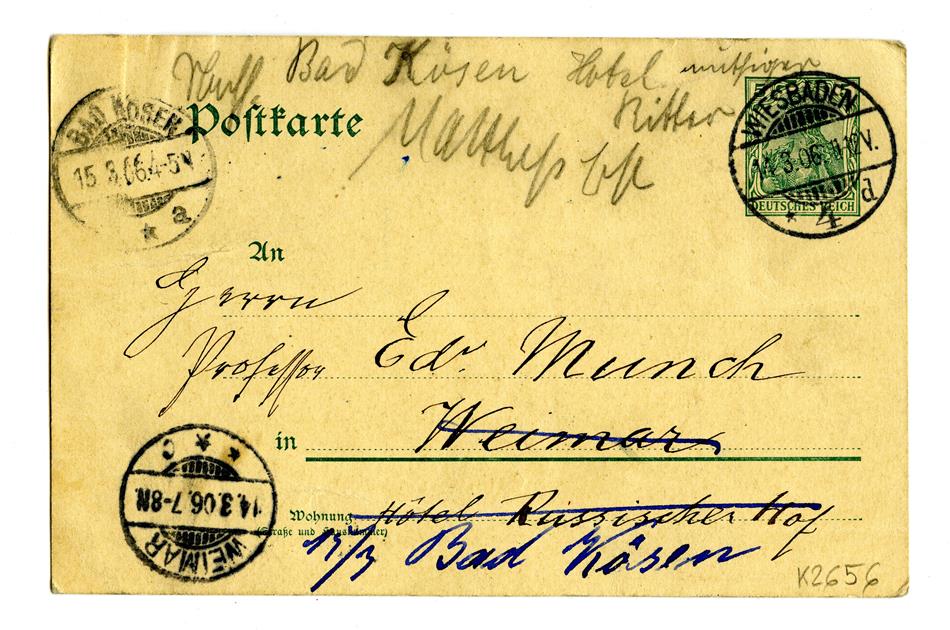 Bad Kösen Hotel muthiger
Ritter
Postkarte
BAD KÖSEN
15.3.06.4-5N.
a
WIESBADEN
14.3.06. V.
* 4 d
DEUTSCHES REICH
An
Herrn
Professor Edv. Munch
in Weimar
Wohnung Hôtel Russischer Hof
(Straße und Hausnummer)
Bad Kösen
WEIMAR
14.3.06.7-8N.
* * * c
K2656